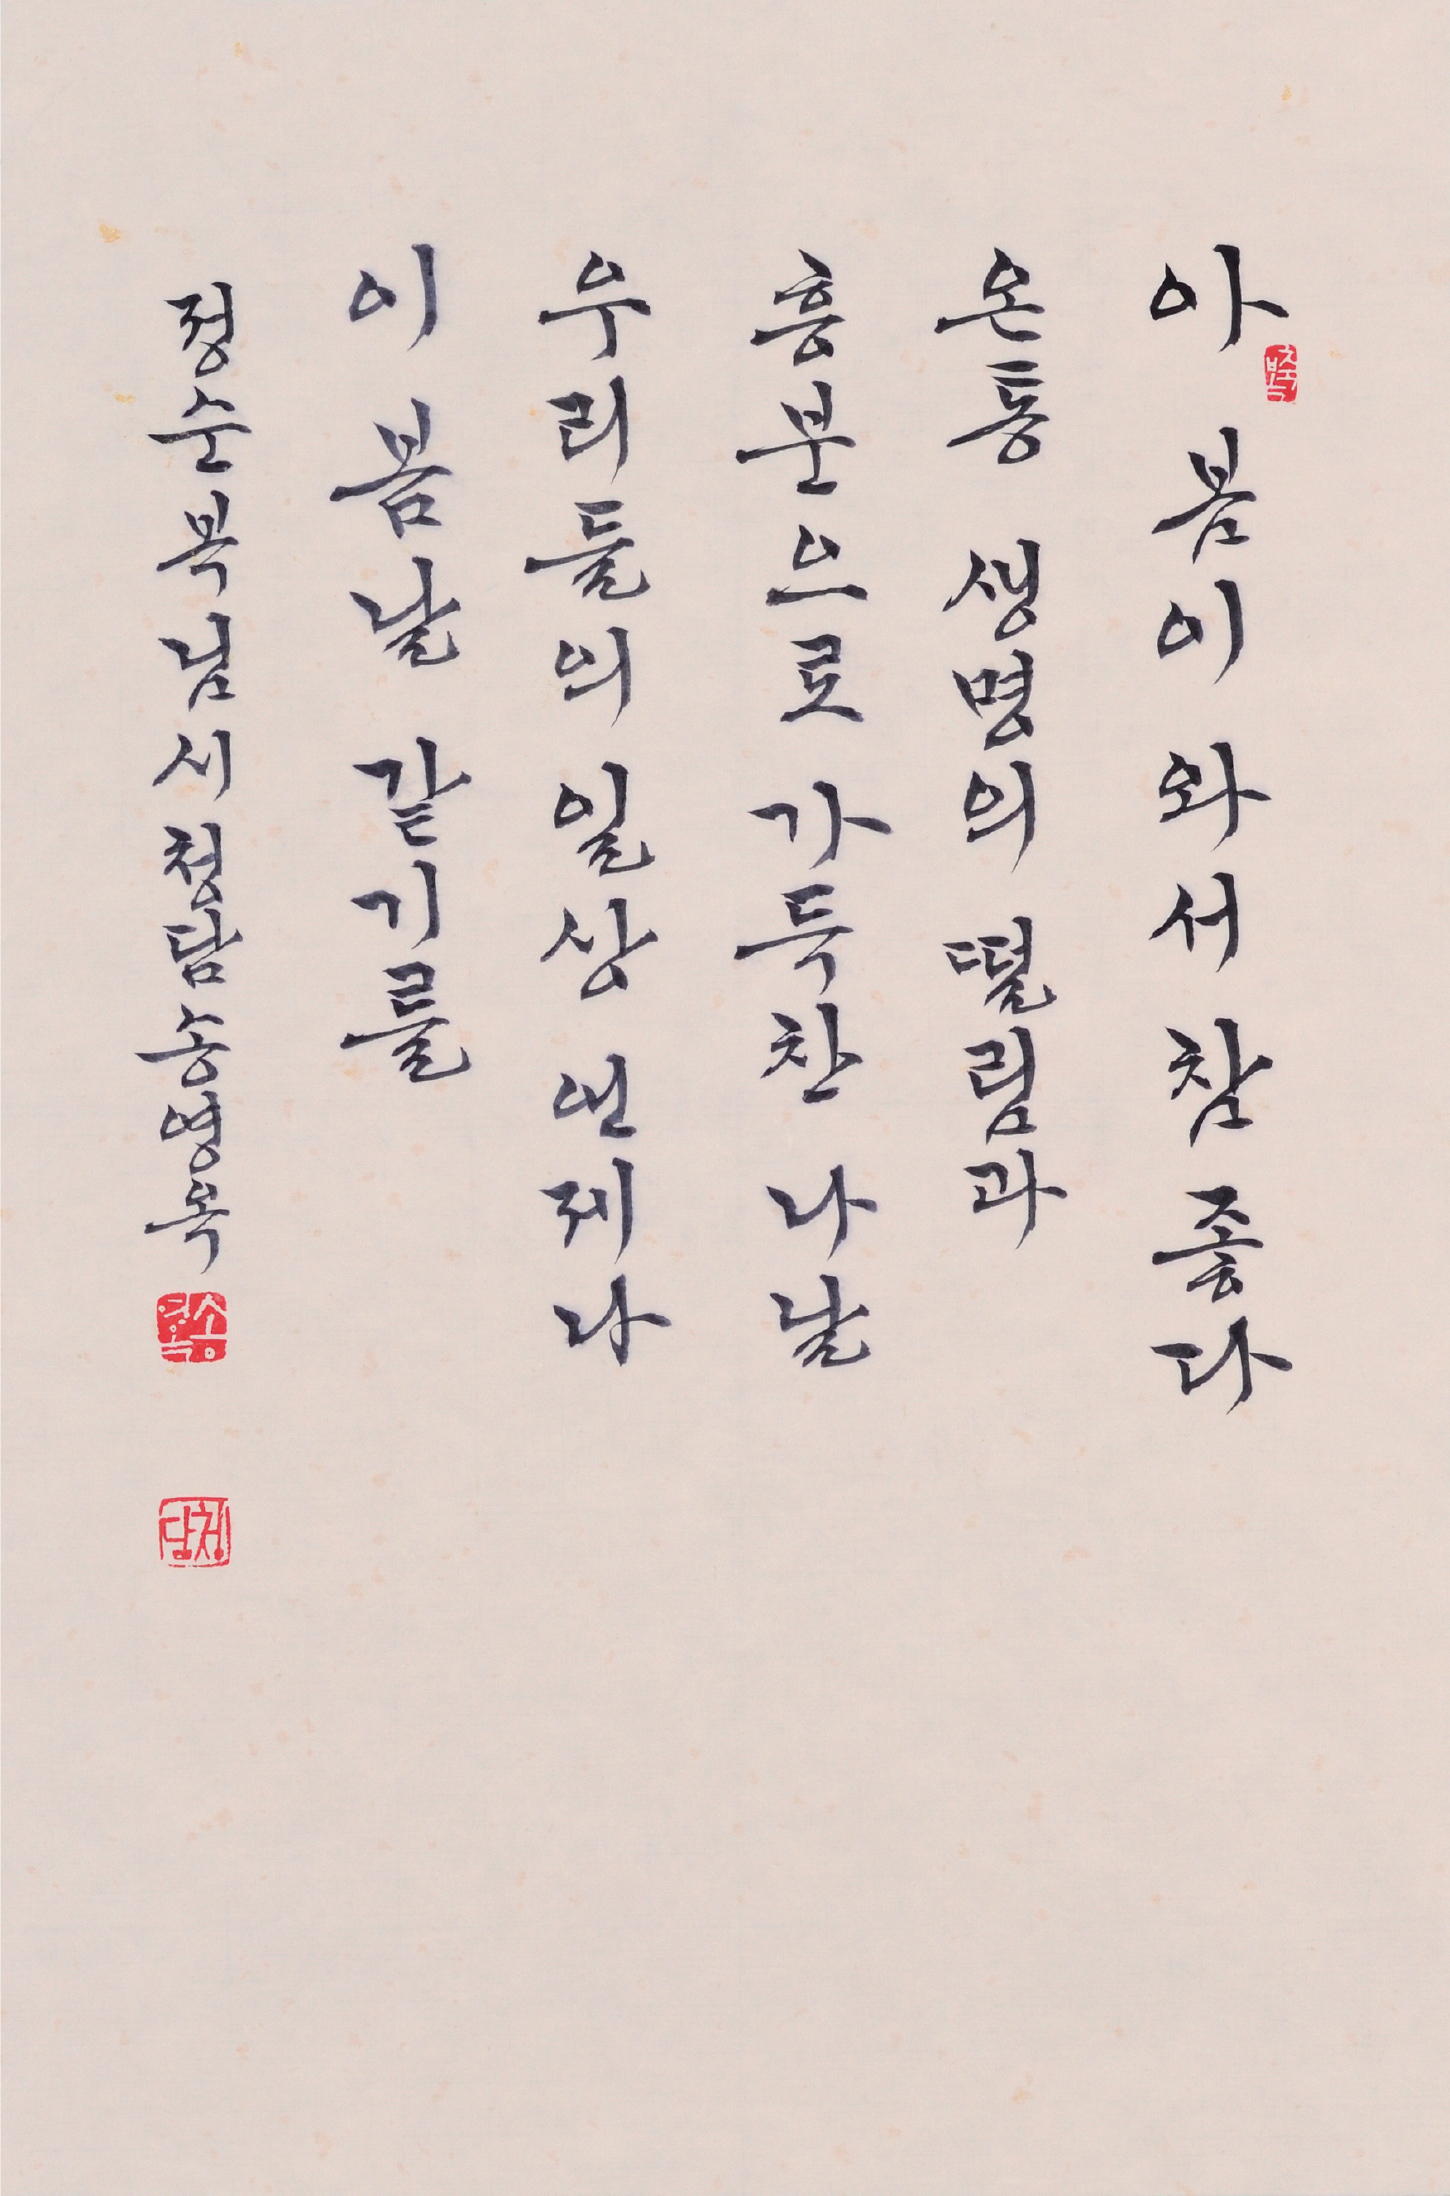 아 봄이 와서 참 좋다
온통 생명의 떨림과
흥분으로 가득찬 나날
우리들의 일상 언제나
이 봄날 같기를
정순복님 시 청담 송영옥
송영옥
청담